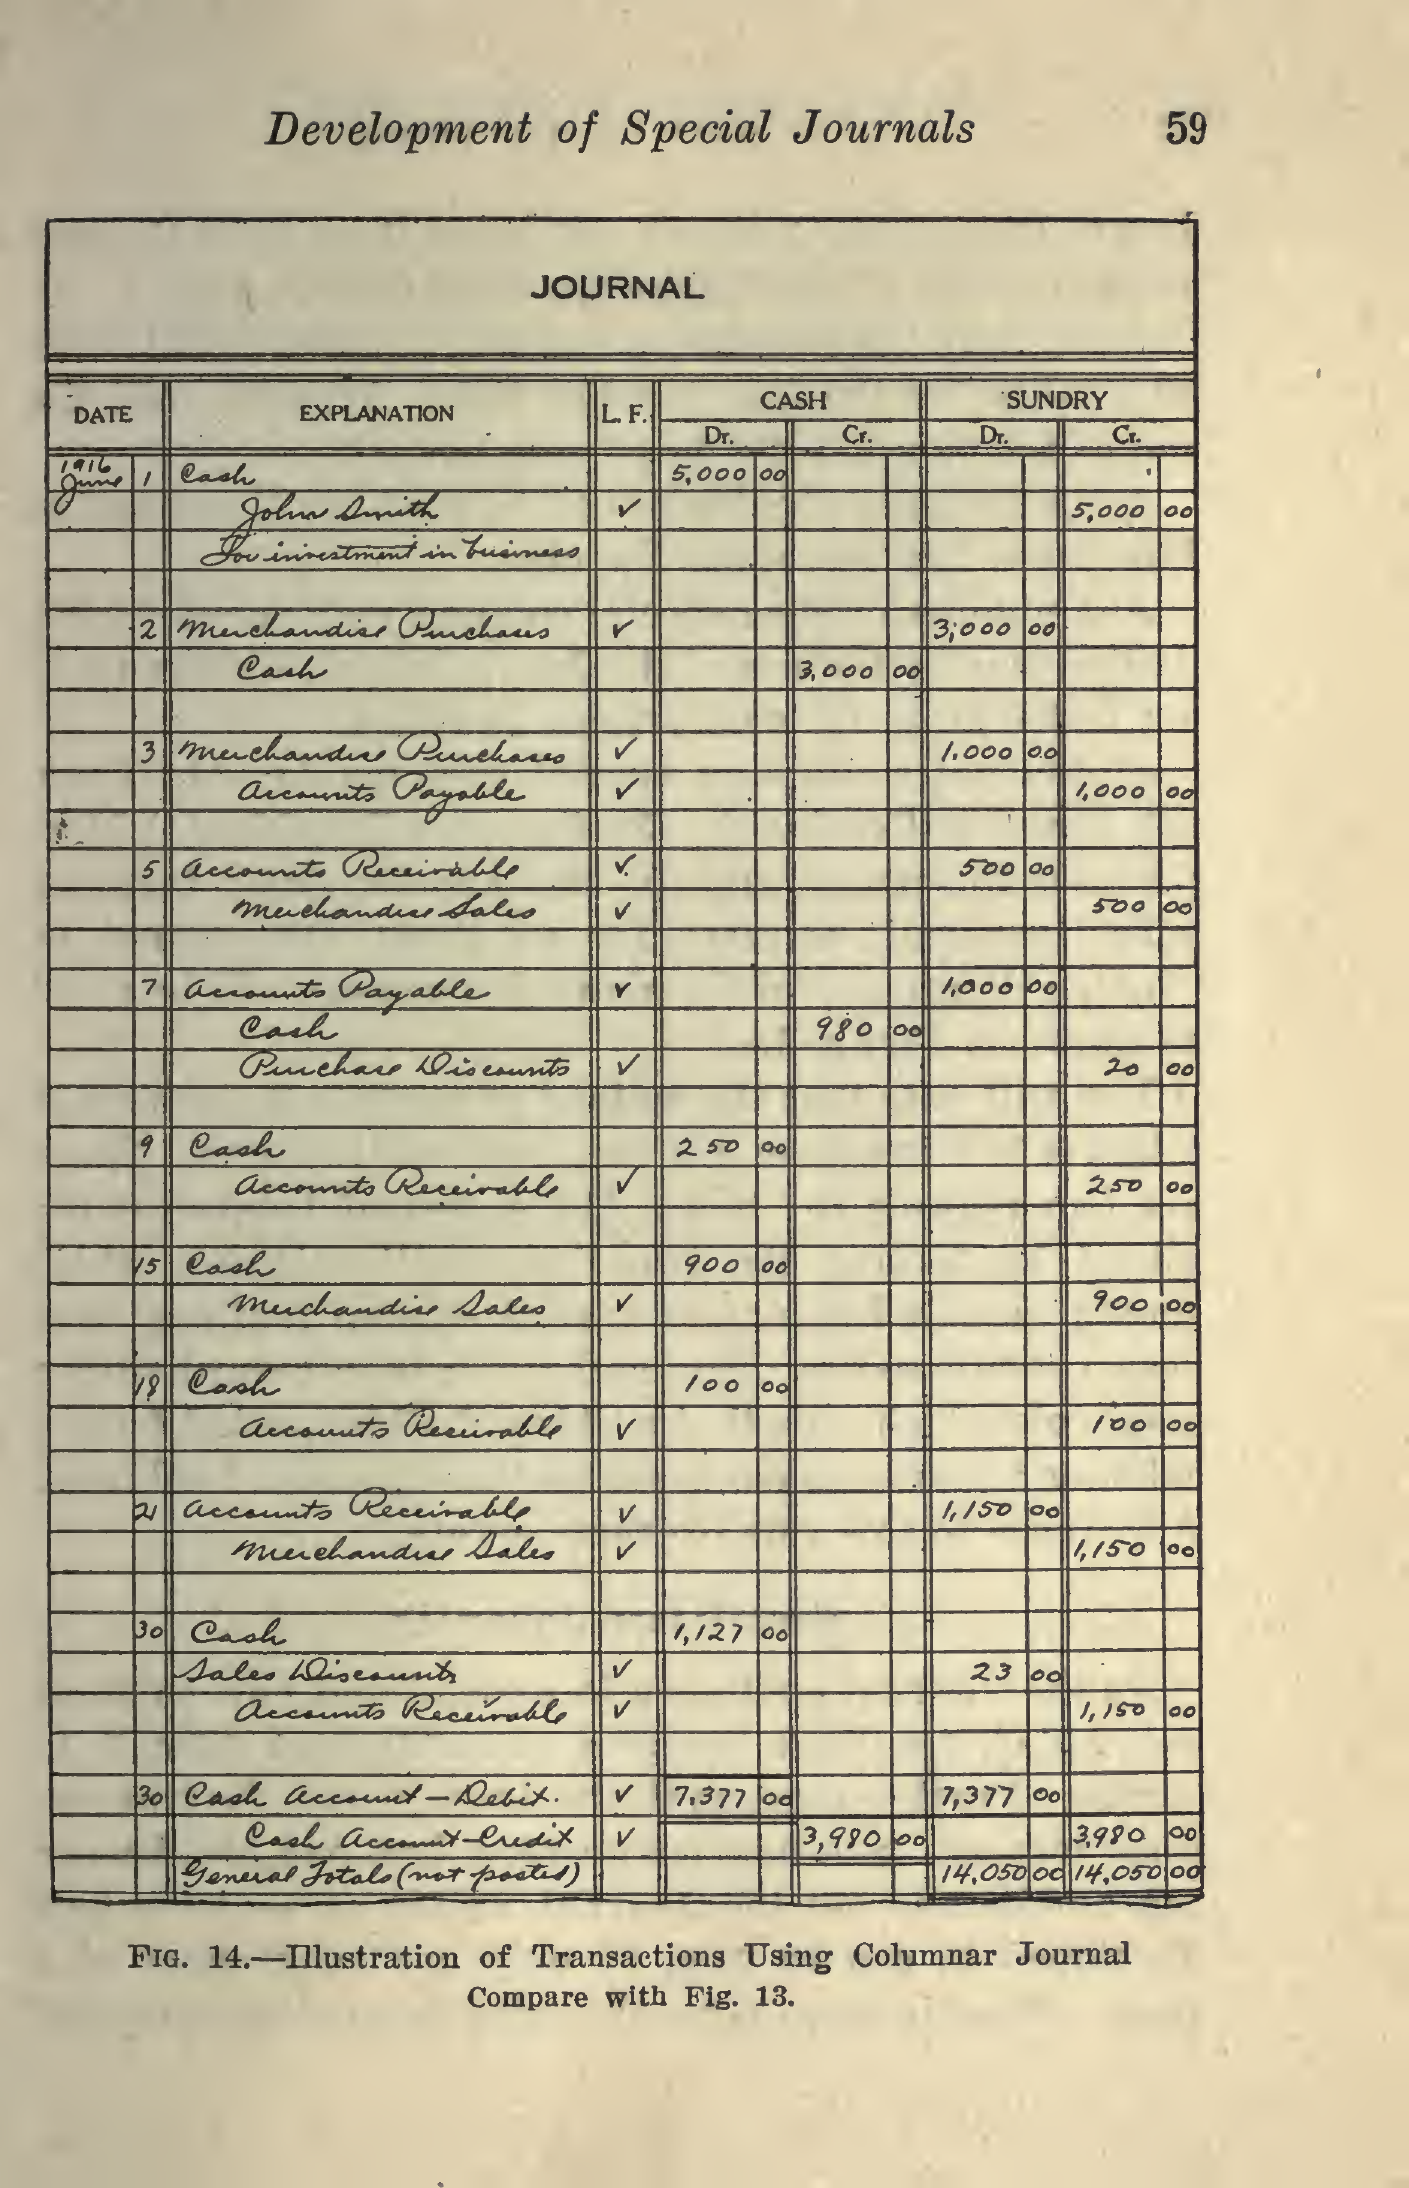 Development of Special Journals 59
JOURNAL
DATE EXPLANATION L. F. CASH SUNDRY
Dr. Cr. Dr. Cr.
1916
June 1 Cash 5,000 00
John Smith ✓ 5,000 00
For investment in business
2 Merchandise Purchases ✓ 3,000 00
Cash 3,000 00
3 Merchandise Purchases ✓ 1,000 00
Accounts Payable ✓ 1,000 00
5 Accounts Receivable ✓ 500 00
Merchandise Sales ✓ 500 00
7 Accounts Payable ✓ 1,000 00
Cash 980 00
Purchase Discounts ✓ 20 00
9 Cash 250 00
Accounts Receivable ✓ 250 00
15 Cash 900 00
Merchandise Sales ✓ 900 00
18 Cash 100 00
Accounts Receivable ✓ 100 00
21 Accounts Receivable ✓ 1,150 00
Merchandise Sales ✓ 1,150 00
30 Cash 1,127 00
Sales Discounts ✓ 23 00
Accounts Receivable ✓ 1,150 00
30 Cash Account—Debit. ✓ 7,377 00 7,377 00
Cash Account—Credit ✓ 3,980 00 3,980 00
General Totals (not posted) 14,050 00 14,050 00
FIG. 14.—Illustration of Transactions Using Columnar Journal
Compare with Fig. 13.